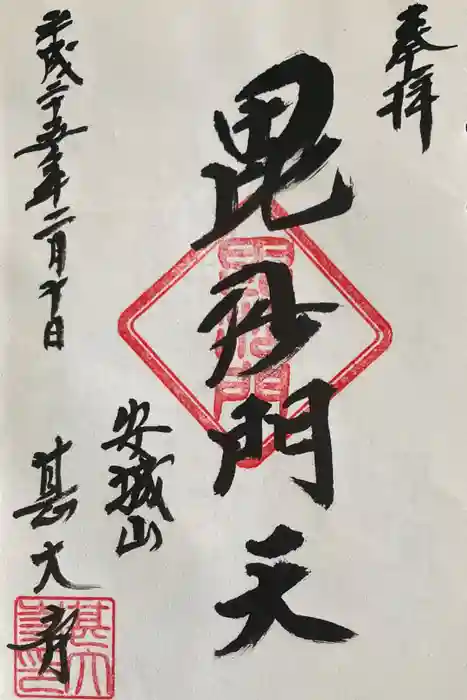 奉拝
毘沙門天
安城山
甚大寺
平成二十五年二月十日